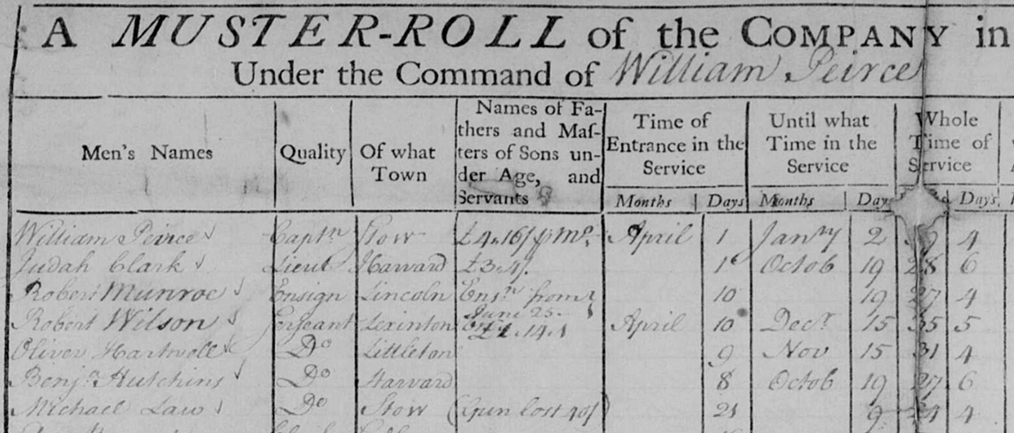 A MUSTER-ROLL of the COMPANY in
Under the Command of William Peirce
Men's Names
Quality
Of what
Town
Names of Fa-
thers and Mas-
ters of Sons un-
der Age, and
Servants
Time of
Entrance in the
Service
Until what
Time in the
Service
Whole
Time of
Service
Months Days Months Day Days
William Peirce Captn Stow £4.16/ p Mo. April 1 Janry 2 4
Judah Clark Lieut Harvard 1 Octob 19 28 6
Robert Munroe Ensign Lincoln Ensn from 10 19 27 4
June 25
Robert Wilson Sergeant Lexinton April 10 Decr 15 35 5
Oliver Hartwell Do Littleton 9 Nov 15 31 4
Benja Hutchins Do Harvard 8 Octob 19 27 6
Michael Law Do Stow (Gun lost 40/) 21 9 24 4